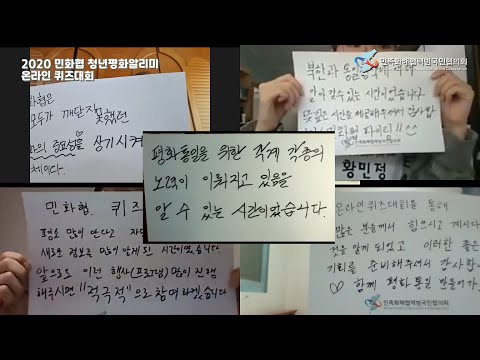 2020 민화협 청년평화알리미
온라인 퀴즈대회
민족화해협력범국민협의회
민화협은
모두가 깨닫지 못했던
중요성을 상기시켜
북한과 통일
알아갈수있는 시간이었습니다
뜻깊은 시간을 제공해주셔서 감사합
민화협 파이팅!!
민족화해협력범국민협의회
황민정
평화통일을 위한 각계 각층의
노력이 이뤄지고 있음을
알 수 있는 시간이었습니다.
민화협, 퀴즈
평소 많이 안다고 자
새로운 정보를 많이 알게 된 시간이었습니다.
앞으로도 이런 행사(프로그램) 많이 진행
해주시면 "적극적"으로 참여 하겠습니다
온라인 퀴즈대회를 통해
많은 분들께서 힘쓰시고 계시다
것을 알게 되었고 이러한 좋은
기회를 준비해주셔서 감사합
♡ 함께 평화통일 만들어가
민족화해협력범국민협의회